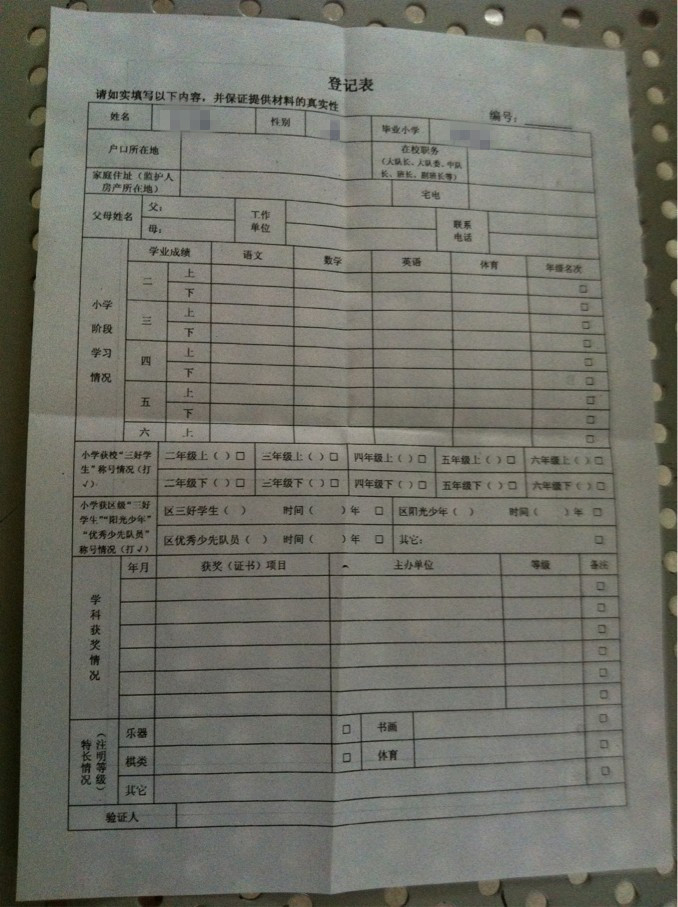 登记表
请如实填写以下内容，并保证提供材料的真实性
编号：
姓名 性别 毕业小学
户口所在地 在校职务
（大队长、大队委、中队
长、班长、副班长等）
家庭住址（监护人
房产所在地） 宅电
父母姓名 父： 工作
单位 联系
电话
母：
小学
阶段
学习
情况
学业成绩 语文 数学 英语 体育 年级名次
二 上
下 □
三 上 □
下 □
四 上 □
下 □
五 上 □
下 □
六 上 □
小学获校“三好学
生”称号情况（打
√）
二年级上（ ）□ 三年级上（ ）□ 四年级上（ ）□ 五年级上（ ）□ 六年级上（ ）□
二年级下（ ）□ 三年级下（ ）□ 四年级下（ ）□ 五年级下（ ）□ 六年级下（ ）□
小学获区级“三好
学生”“阳光少年”
“优秀少先队员”
称号情况（打√）
区三好学生（ ） 时间（ ）年 □ 区阳光少年（ ） 时间（ ）年 □
区优秀少先队员（ ） 时间（ ）年 □ 其它： □
学
科
获
奖
情
况
年月 获奖（证书）项目 主办单位 等级 备注
□
□
□
□
□
□
特长情况
（注明等级）
乐器 □ 书画 □
棋类 □ 体育 □
其它 □
验证人